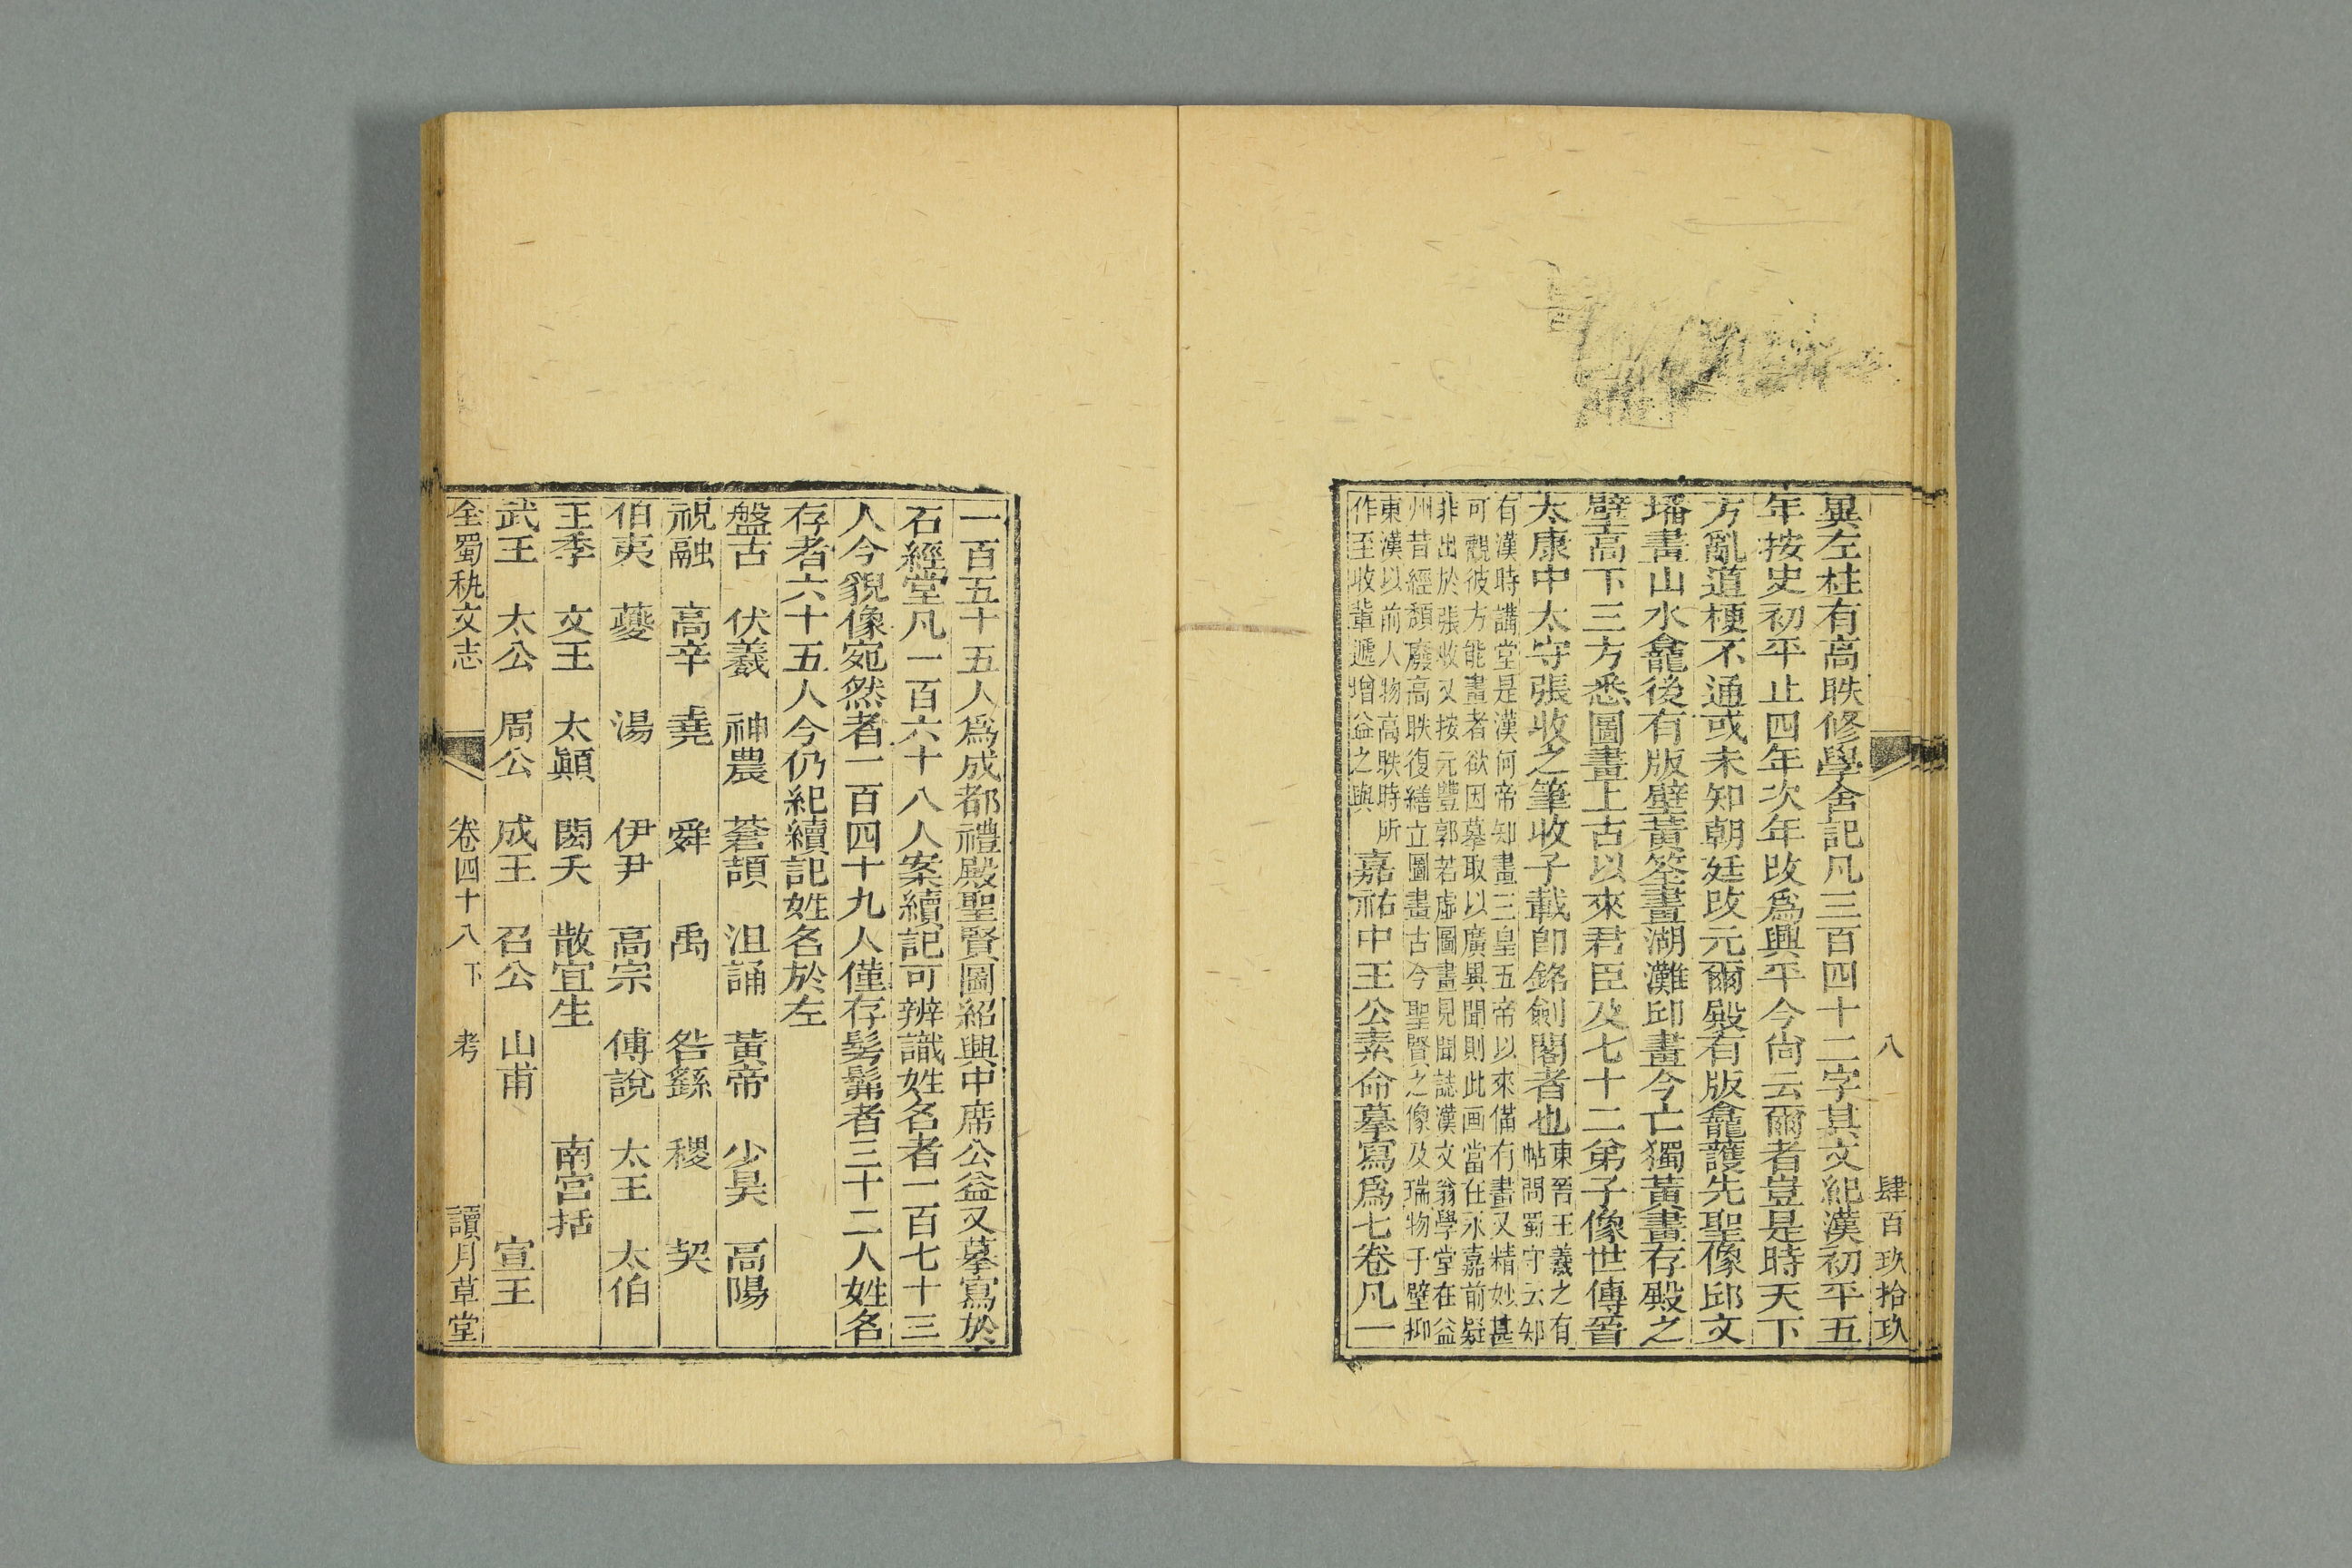 八　肆百玖拾玖
異左柱有高眹修學舍記凡三百四十二字其文紀漢初平五
年按史初平止四年次年改爲興平今尙云爾者豈是時天下
方亂道梗不通或未知朝廷改元爾殿有版龕護先聖像邱文
播畫山水龕後有版壁黃筌畫湖灘邱畫今亡獨黃畫存殿之
壁高下三方悉圖畫上古以來君臣及七十二弟子像世傳晉
太康中太守張收之筆收子載卽銘劍閣者也
東晉王羲之有
帖問蜀守云知
有漢時講堂是漢何帝知畫三皇五帝以來備有畫又精妙甚
可觀彼方能畫者欲因摹取以廣異聞則此画當在永嘉前疑
非出於張收又按元豐郭若虛圖畫見聞誌漢文翁學堂在益
州昔經頽廢高眹復繕立圖畫古今聖賢之像及瑞物于壁抑
東漢以前人物高眹時所
作至收輩遞增益之與
嘉祐中王公素命摹寫爲七卷凡一
一百五十五人爲成都禮殿聖賢圖紹興中席公益又摹寫於
石經堂凡一百六十八人案續記可辨識姓名者一百七十三
人今貌像宛然者一百四十九人僅存髣髴者三十二人姓名
存者六十五人今仍紀續記姓名於左
盤古　伏羲　神農　蒼頡　沮誦　黃帝　少昊　高陽
祝融　高辛　堯　舜　禹　咎繇　稷　契
伯夷　夔　湯　伊尹　高宗　傅說　太王　太伯
王季　文王　太顚　閎夭　散宜生　南宮括
武王　太公　周公　成王　召公　山甫　宣王
全蜀秇文志　卷四十八下　考　讀月草堂